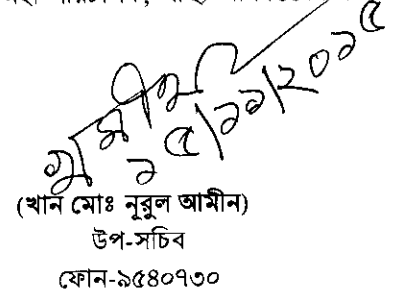 ১৫/১১/২০১৫
(খান মোঃ নূরুল আমীন)
উপ-সচিব
ফোন-৯৫৪০৭৩০